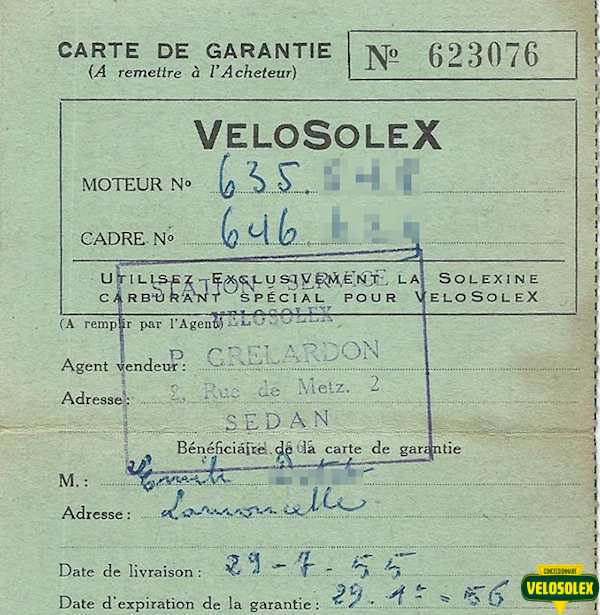 CARTE DE GARANTIE
(A remettre à l'Acheteur)
Nº 623076
VELOSOLEX
MOTEUR Nº 635.
CADRE Nº 646
UTILISEZ EXCLUSIVEMENT LA SOLEXINE
CARBURANT SPÉCIAL POUR VELOSOLEX
STATION-SERVICE
VELOSOLEX
(A remplir par l'Agent)
P. GRELARDON
Agent vendeur:
2, Rue de Metz. 2
Adresse:
SEDAN
Bénéficiaire de la carte de garantie
M.: Emile
Adresse: Lamoncelle
Date de livraison: 29-7-55
Date d'expiration de la garantie: 29.1º=56
CONCESSIONNAIRE
VELOSOLEX